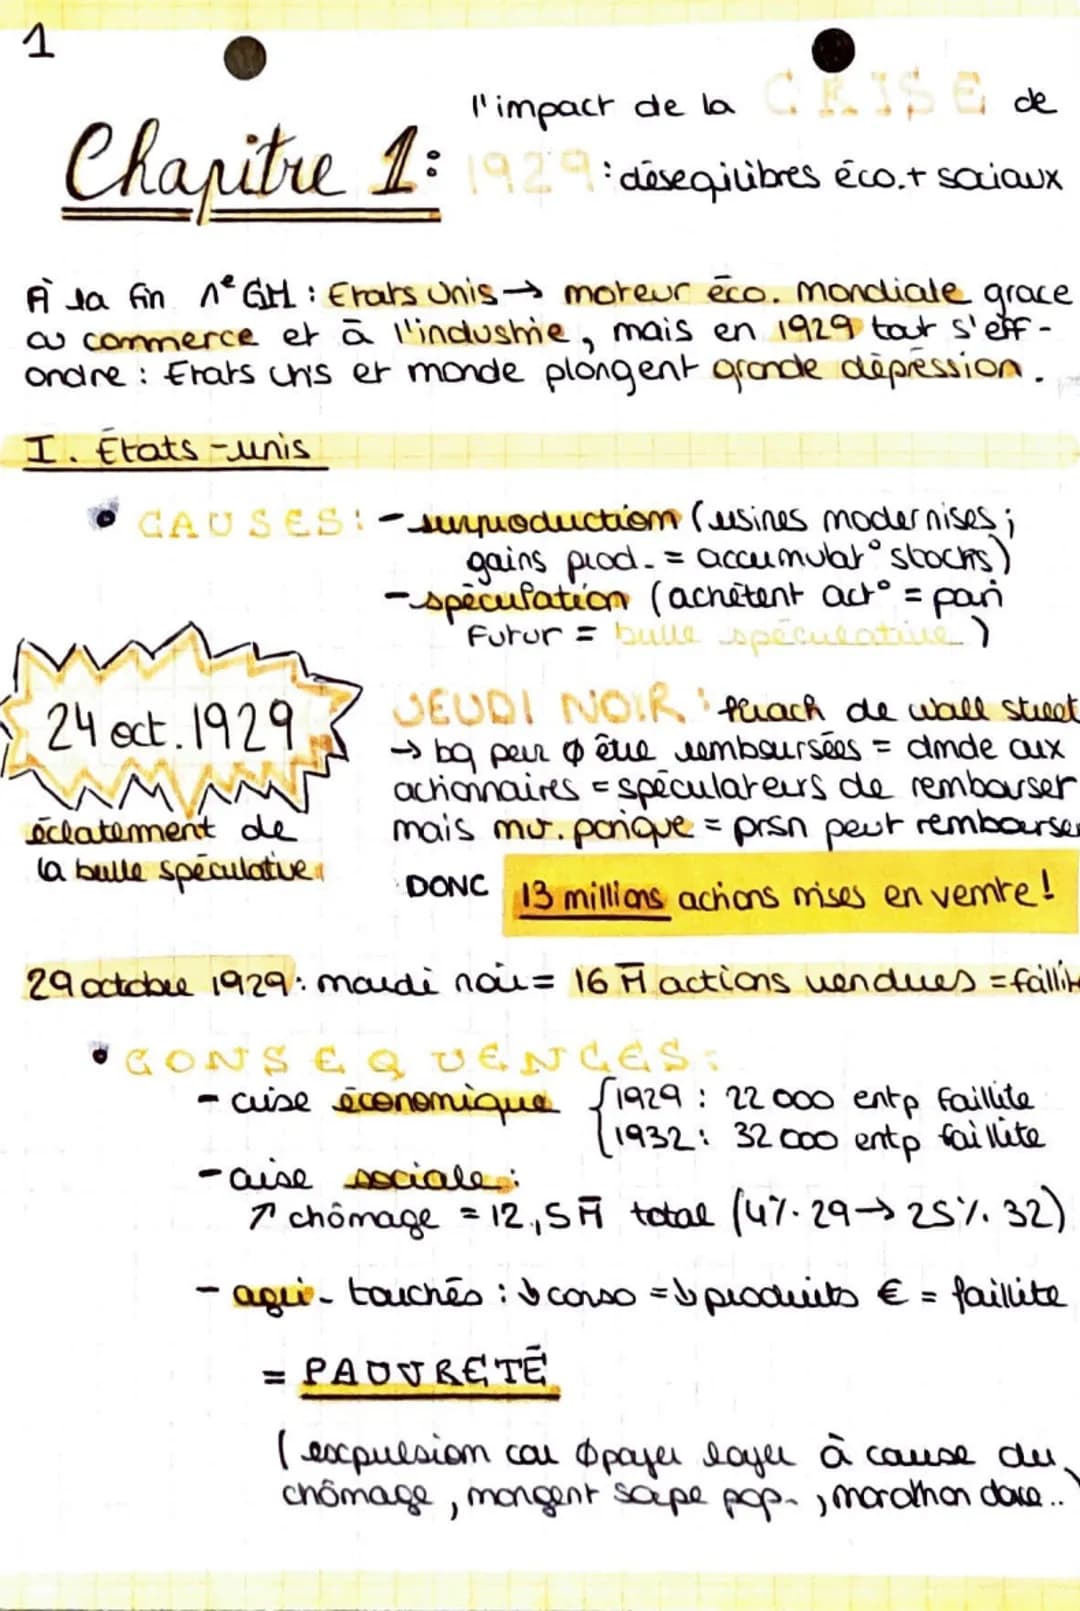 1
l'impact de la CRISE de
Chapitre 1: 1929 : déseqilibres éco.+ sociaux
À la fin 1e GM : Etats Unis → moteur éco. mondiale grace
au commerce et à l'industrie, mais en 1929 tout s'eff-
ondre : Etats unis et monde plongent grande dépréssion.
I. États-unis
• CAUSES: - surproduction (usines modernises ;
gains prod. = accumulat° stocks)
- spéculation (achètent act° = pari
Futur = bulle spéculative)
24 oct. 1929
éclatement de
la bulle spéculative
JEUDI NOIR : krach de wall street
→ bq peur Ø être remboursées = dmde aux
actionnaires = spéculateurs de rembourser
mais mv. panique = prsn peut rembourser
DONC 13 millions actions mises en vente!
29 octobre 1929 : mardi noir = 16 M actions vendues = faillite
• CONSEQUENCES:
- crise économique { 1929 : 22 000 entp faillite
1932 : 32 000 entp faillite
- crise sociale :
↗ chômage = 12,5 M total (4% 29 → 25% 32)
- agri. touchés : ↓ conso = ↓ produits € = faillite
= PAUVRETÉ
(expulsion car Ø payer loyer à cause du
chômage, mangent soupe pop., marathon danse..